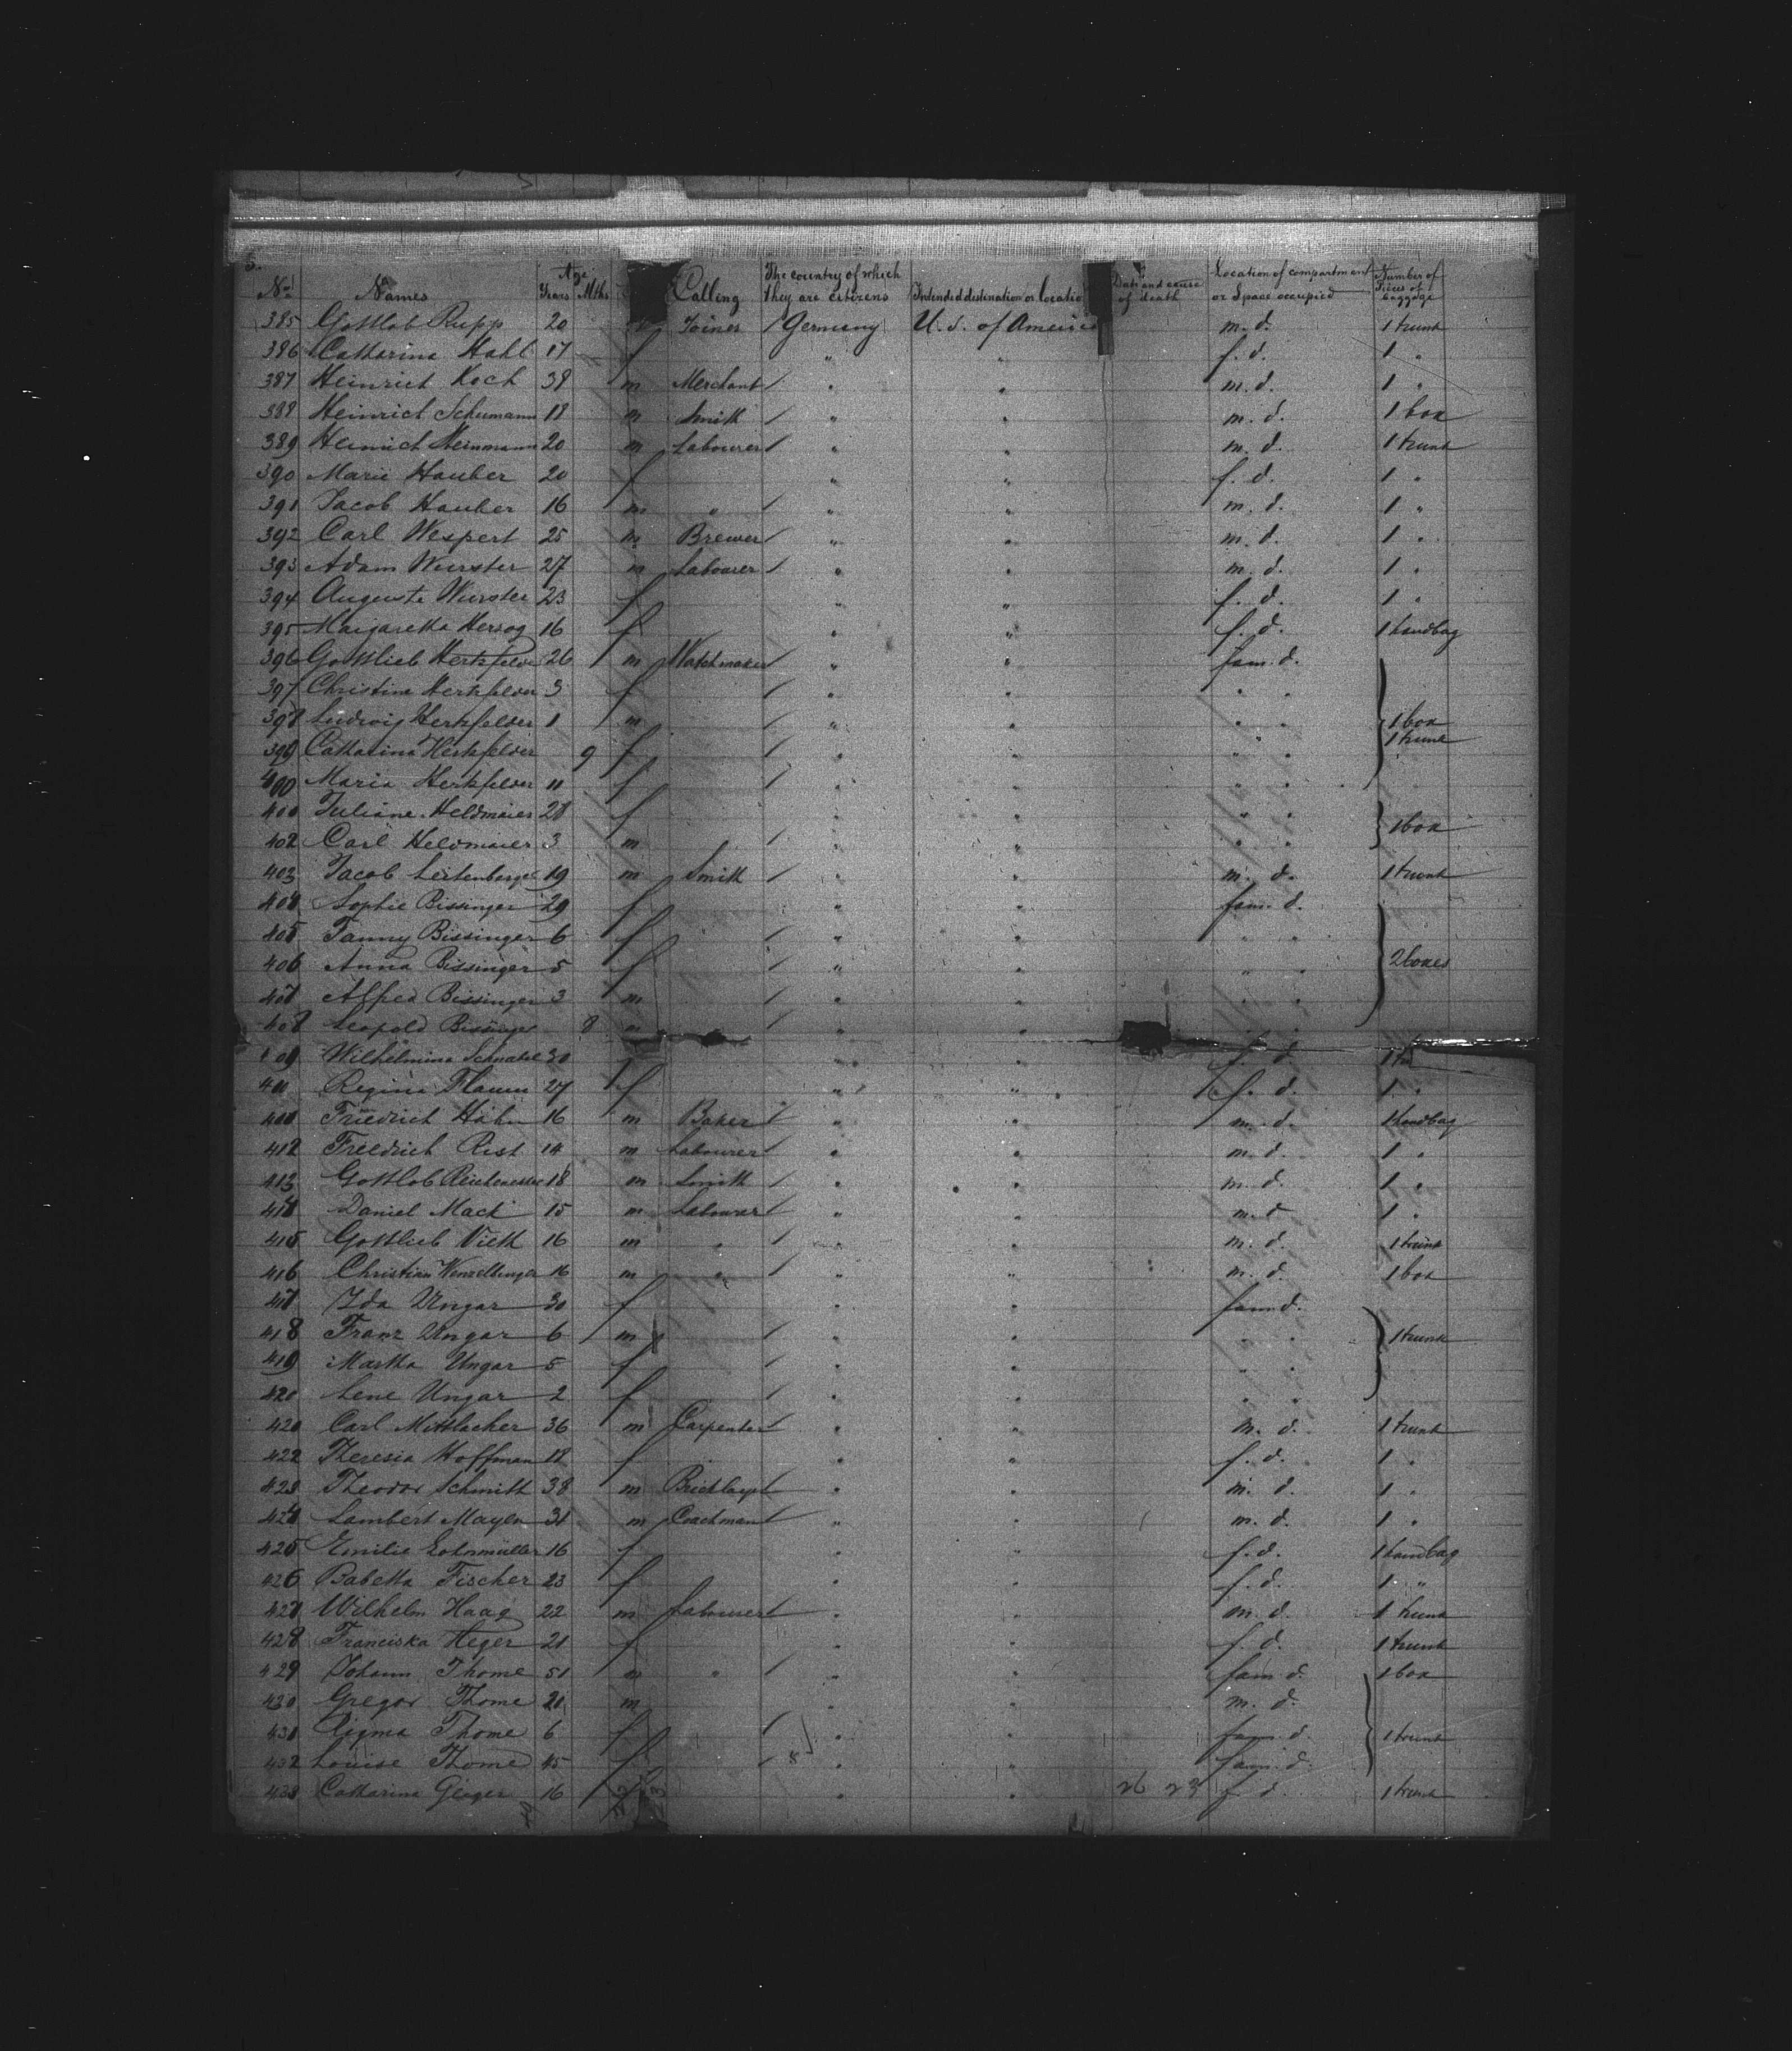 5.
No. Names Age Years Mths Calling The country of which they are citizens Intended destination or location Date and cause of death Location of compartment or Space occupied Number of Pieces of baggage
385 Gottlob Rupp 20 Joiner / Germany U. S. of America m. d. 1 trunk
386 Catharina Hahl 17 f " " f. d. 1 "
387 Heinrich Koch 39 m Merchant / " " m. d. 1 "
388 Heinrich Schumann 18 m Smith / " " m. d. 1 box
389 Heinrich Steinmann 20 m Labourer / " " m. d. 1 trunk
390 Marie Hauber 20 f " " f. d. 1 "
391 Jacob Hauber 16 m " / " " m. d. 1 "
392 Carl Wespert 25 m Brewer / " " m. d. 1 "
393 Adam Wurster 27 m Labourer / " " m. d. 1 "
394 Auguste Wurster 23 f " " f. d. 1 "
395 Margaretha Herzog 16 f " " f. d. 1 handbag
396 Gottlieb Herkfelder 26 m Watchmaker / " " fam. d.
397 Christine Herkfelder 3 f / " " " "
398 Ludwig Herkfelder 1 m / " " " " 1 box
399 Catharina Herkfelder 9 f / " " " " 1 trunk
400 Maria Herkfelder 11 f / " " " "
Juliane Heldmaier 28 f " " " "
402 Carl Heldmaier 3 m / " " " " 1 box
403 Jacob Leitenberger 19 m Smith / " " m. d. 1 trunk
404 Sophie Bissinger 29 f " " fam. d.
405 Fanny Bissinger 6 f / " " " "
406 Anna Bissinger 5 f / " " " " 2 boxes
407 Alfred Bissinger 3 m / " " " "
408 Leopold Bissinger 8 m / " "
409 Wilhelmina 30 " " f. d. 1
Regina Flaum 27 f " " f. d. 1 "
Friedrich Hahn 16 m Baker / " " m. d. 1 handbag
412 Friedrich Rist 14 m Labourer / " " m. d. 1 "
413 Gottlob 18 m Smith / " " m. d. 1 "
414 Daniel Mack 15 m Labourer / " " m. d. 1 "
415 Gottlieb Vieth 16 m " / " " m. d. 1 trunk
416 Christian Wenzelburger 16 m " / " " m. d. 1 box
417 Ida Ungar 30 f " " fam d.
418 Franz Ungar 6 m / " " " " 1 trunk
419 Martha Ungar 5 f / " " " "
420 Lene Ungar 2 f / " " " "
Carl Mittlacher 36 m Carpenter / " " m. d. 1 trunk
422 Theresia Hoffman 18 f " " f. d. 1 "
423 Theodor Schmith 38 m Bricklayer / " " m. d. 1 "
424 Lambert Mayer 31 m Coachman / " " m. d. 1 "
425 Emilie Lohrmüller 16 f " " f. d. 1 handbag
426 Babetta Fischer 23 f " " f. d. 1 "
427 Wilhelm Haag 22 m Labourer / " " m. d. 1 trunk
428 Franciska Heger 21 f " " f. d. 1 trunk
429 Johann Thome 51 m " / " " fam d. 1 box
430 Gregor Thome 21 m " " m. d.
431 Thome 6 f / " " fam d. 1 trunk
432 Louise Thome 45 f / " " fam. d.
433 Catharina Geiger 16 f " " 26 23 f d. 1 trunk